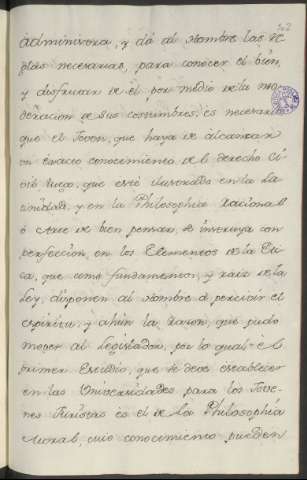 administra, y dá al hombre las re
glas necesarias, para conocer el bien,
y disfrutar de el por medio de la mo
deracion de sus costumbres: es necesario
que el Joven, que haya de alcanzar
un exacto conocimiento del derecho Ci
vil luego, que esté ilustrado en la La
tinidad, y en la Philosophia racional
ó Arte de bien pensar, se instruya con
perfeccion, en los Elementos de la Eti
ca, que como fundamentos, y raiz de la
Ley, disponen al hombre á percivir el
espiritu, y ahun la razon, que pudo
mover al legislador, por lo qual el
primer Estudio, que se deve establecer
en las Universidades para los Jove
nes Juristas es el de la Philosophia
Moral, cuio conocimiento pueden